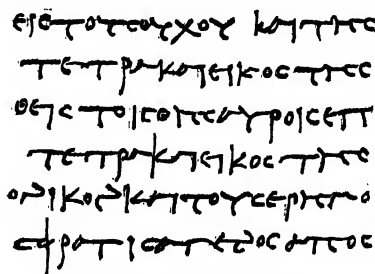 ειϲτοτϲουχου καιτηϲ
τετρακαιεικοϲτηϲ
θειϲτοιϲθηϲαυροιϲεπ
τετρακαιεικοϲτηϲ
ονικονκαιτουϲερημο
ϲφραγιϲαμενοϲαποϲ